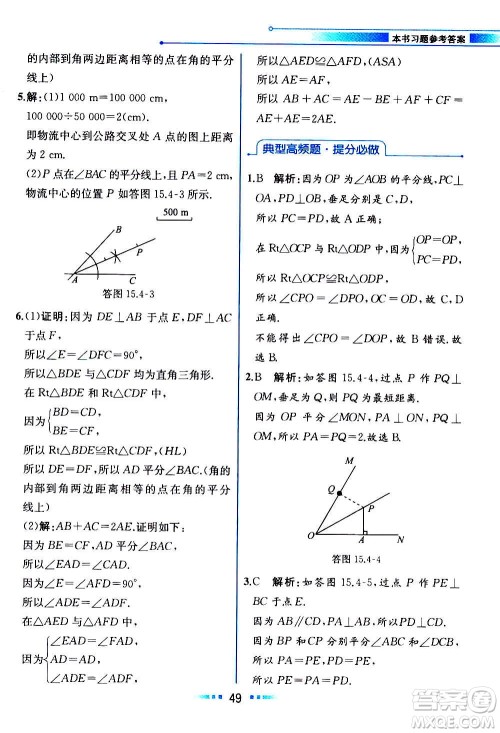 本书习题参考答案
的内部到角两边距离相等的点在角的平分
线上)
5.解:(1)1 000 m=100 000 cm,
100 000÷50 000=2(cm).
即物流中心到公路交叉处 A 点的图上距离
为 2 cm.
(2)P 在∠BAC 的平分线上,AP=2 cm,
物流中心的位置 P 如答图 15.4-3 所示.
500 m
B
P
A
C
答图 15.4-3
6.(1)证明:因为 DE⊥AB 于点 E,DF⊥AC
于点 F,
所以∠E=∠DFC=90°,
所以△BDE,△CDF 均为直角三角形.
因为{BD=CD,
BE=CF,
所以 Rt△BDE≌Rt△CDF,(HL)
所以 DE=DF,所以 AD 平分∠BAC.(角的
内部到角两边距离相等的点在角的平分
线上)
(2)解:AB+AC=2AE.证明如下:
因为 BE=CF,AD 平分∠BAC,
所以∠EAD=∠CAD.
因为∠E=∠AFD=90°,
所以∠ADE=∠ADF.
在△AED 与△AFD 中,
因为{∠EAD=∠CAD,
AD=AD,
∠ADE=∠ADF,
所以△AED≌△AFD,(ASA)
所以 AE=AF,
所以 AB+AC=AE-BE+AF+CF=
AE+AE=2AE.
典型高频题·提分必做
1.B 解析:因为 OP 为∠AOB 的平分线,PC⊥
OA,PD⊥OB,垂足分别是 C,D,
所以 PC=PD,故 A 正确;
在 Rt△OCP 与 Rt△ODP 中,{OP=OP,
PC=PD,
所以 Rt△OCP≌Rt△ODP,
所以∠CPO=∠DPO,OC=OD,故 C,D
正确.
不能得出∠CPD=∠DOP,故 B 错误.
故选 B.
2.B 解析:如答图 15.4-4,过点 P 作 PQ⊥
OM,垂足为 Q,则 PQ 为最短距离.
因为 OP 平分∠MON,PA⊥ON,PQ⊥
OM,所以 PA=PQ=2.故选 B.
M
Q
P
O
A
N
答图 15.4-4
3.C 解析:如答图 15.4-5,过点 P 作 PE⊥
BC 于点 E.
因为 AB∥CD,PA⊥AB,所以 PD⊥CD.
因为 BP 和 CP 分别平分∠ABC 和∠DCB,
所以 PA=PE,PD=PE,
所以 PE=PA=PD.
49
答案圈